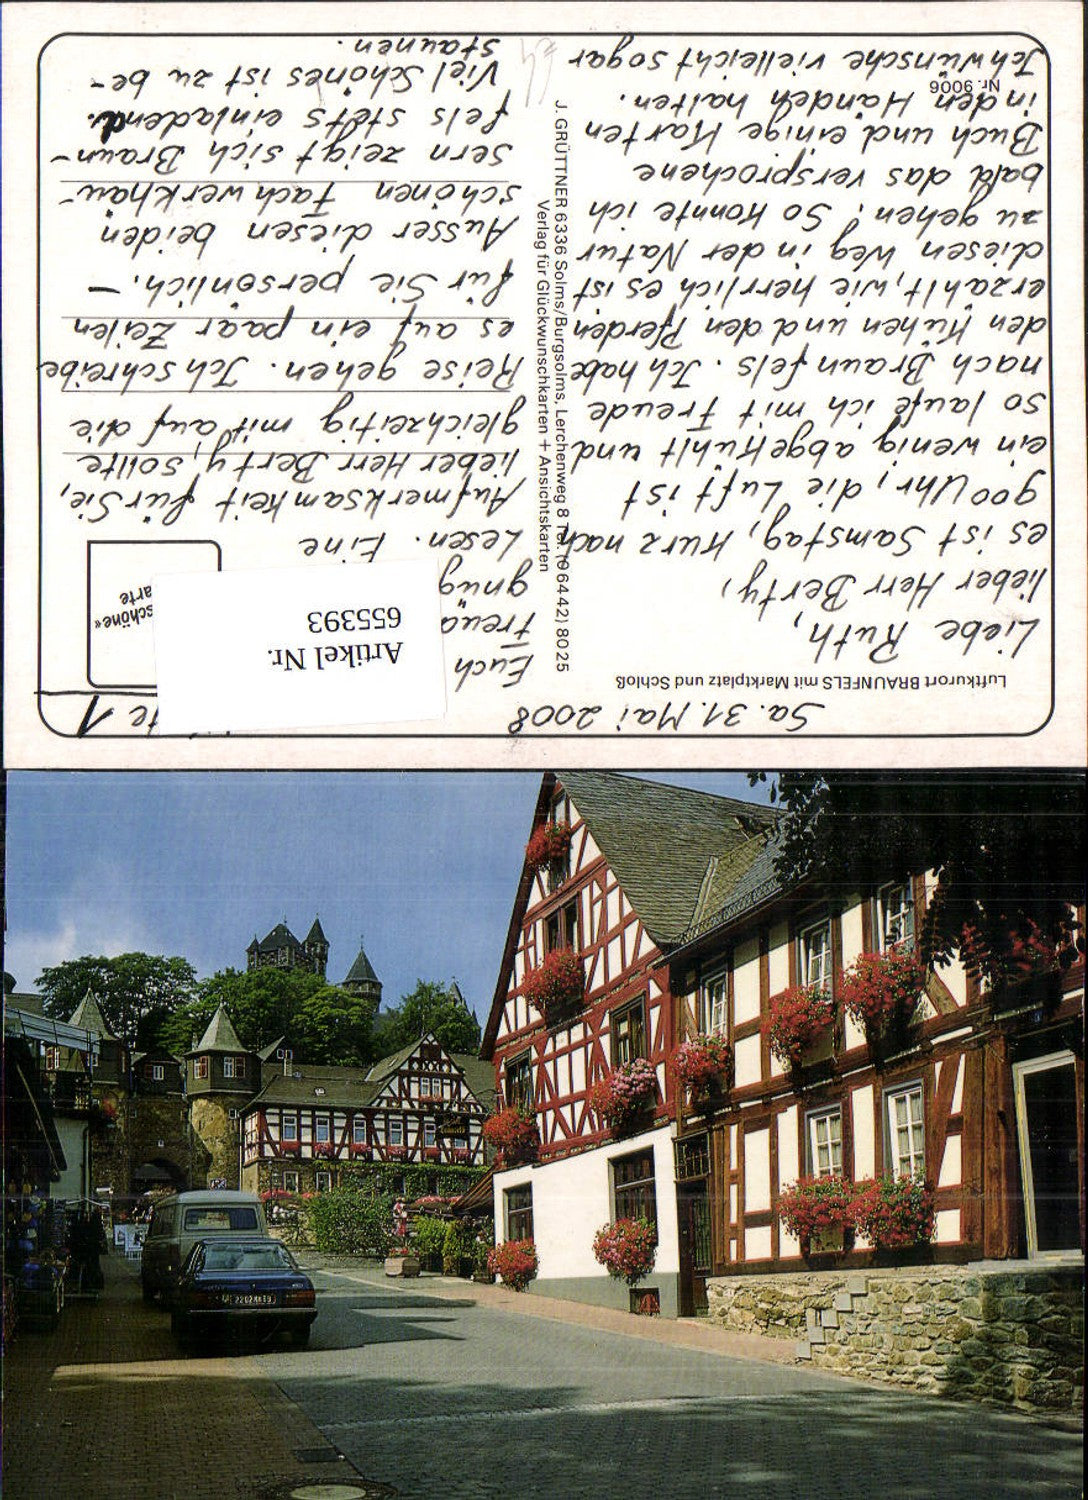 Sa. 31. Mai 2008
Luftkurort BRAUNFELS mit Marktplatz und Schloß
Liebe Ruth,
lieber Herr Berty,
es ist Samstag, kurz nach
900 Uhr, die Luft ist
ein wenig abgekühlt und
so laufe ich mit Freude
nach Braunfels. Ich habe
den Kühen und den Pferden
erzählt, wie herrlich es ist
diesen Weg in der Natur
zu gehen! So konnte ich
bald das versprochene
Buch und einige Karten
in den Händen halten.
Nr. 9006
Ich wünsche vielleicht sogar
J. GRÜTTNER 6336 Solms/Burgsolms, Lerchenweg 8 Tel. (06442) 8025
Verlag für Glückwunschkarten + Ansichtskarten
1
Artikel Nr.
655393
schöne«
arte
Euch
Freud
gnüg
Lesen. Eine
Aufmerksamkeit für Sie,
lieber Herr Berty, sollte
gleichzeitig mit auf die
Reise gehen. Ich schreibe
es auf ein paar Zeilen
für Sie persönlich. –
Ausser diesen beiden
schönen Fachwerkhäu-
sern zeigt sich Braun-
fels stets einladend.
Viel Schönes ist zu be-
staunen.